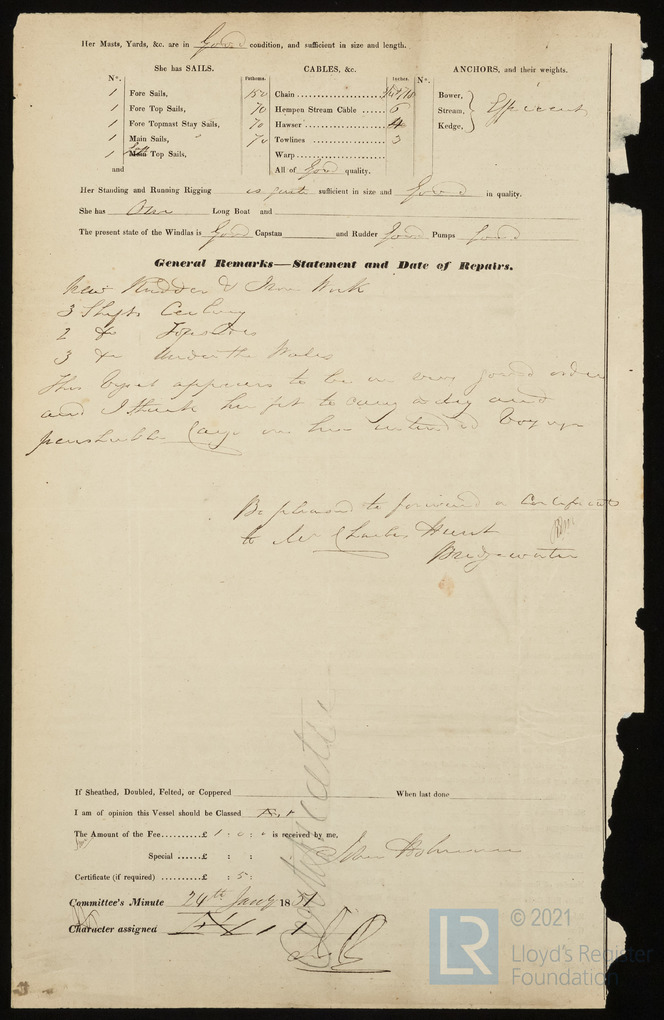 Her Masts, Yards, &c. are in Good condition, and sufficient in size and length.
She has SAILS.
CABLES, &c.
ANCHORS, and their weights.
N°.
Fathoms.
Inches.
N°.
1 Fore Sails,
1 Fore Top Sails,
1 Fore Topmast Stay Sails,
1 Main Sails,
1 Main Top Sails,
and
150 Chain
70 Hempen Stream Cable 6
70 Hawser 4
70 Towlines 3
Warp
All of Good quality.
Bower,
Stream,
Kedge,
Efficient
Her Standing and Running Rigging is quite sufficient in size and Good in quality.
She has One Long Boat and
The present state of the Windlas is Good Capstan and Rudder Good Pumps Good
General Remarks—Statement and Date of Repairs.
New Rudder & Iron Work
3 Shifts Ceiling
2 do Topsides
3 do Under the Wales
This Vessel appears to be in very good order
and I think her fit to carry a dry and
perishable Cargo on her intended Voyage
Be pleased to forward a Certificate
to Mr Charles Hunt
Bridgewater
If Sheathed, Doubled, Felted, or Coppered
When last done
I am of opinion this Vessel should be Classed
The Amount of the Fee..........£ 1 : 0 : 0 is received by me,
Special ......£ : :
Certificate (if required) .........£ : 5 :
John
Committee's Minute 24th Jany 1851
Character assigned
© 2021
LR
Lloyd's Register
Foundation